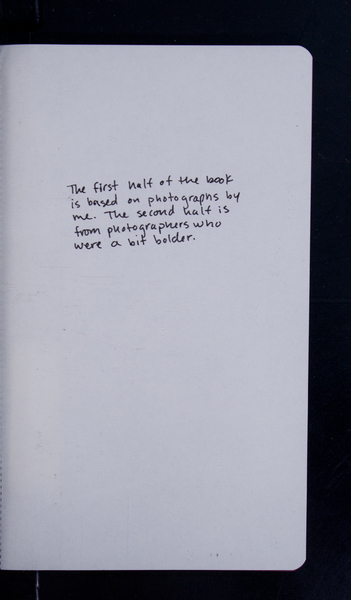 The first half of the book
is based on photographs by
me. The second half is
from photographers who
were a bit bolder.